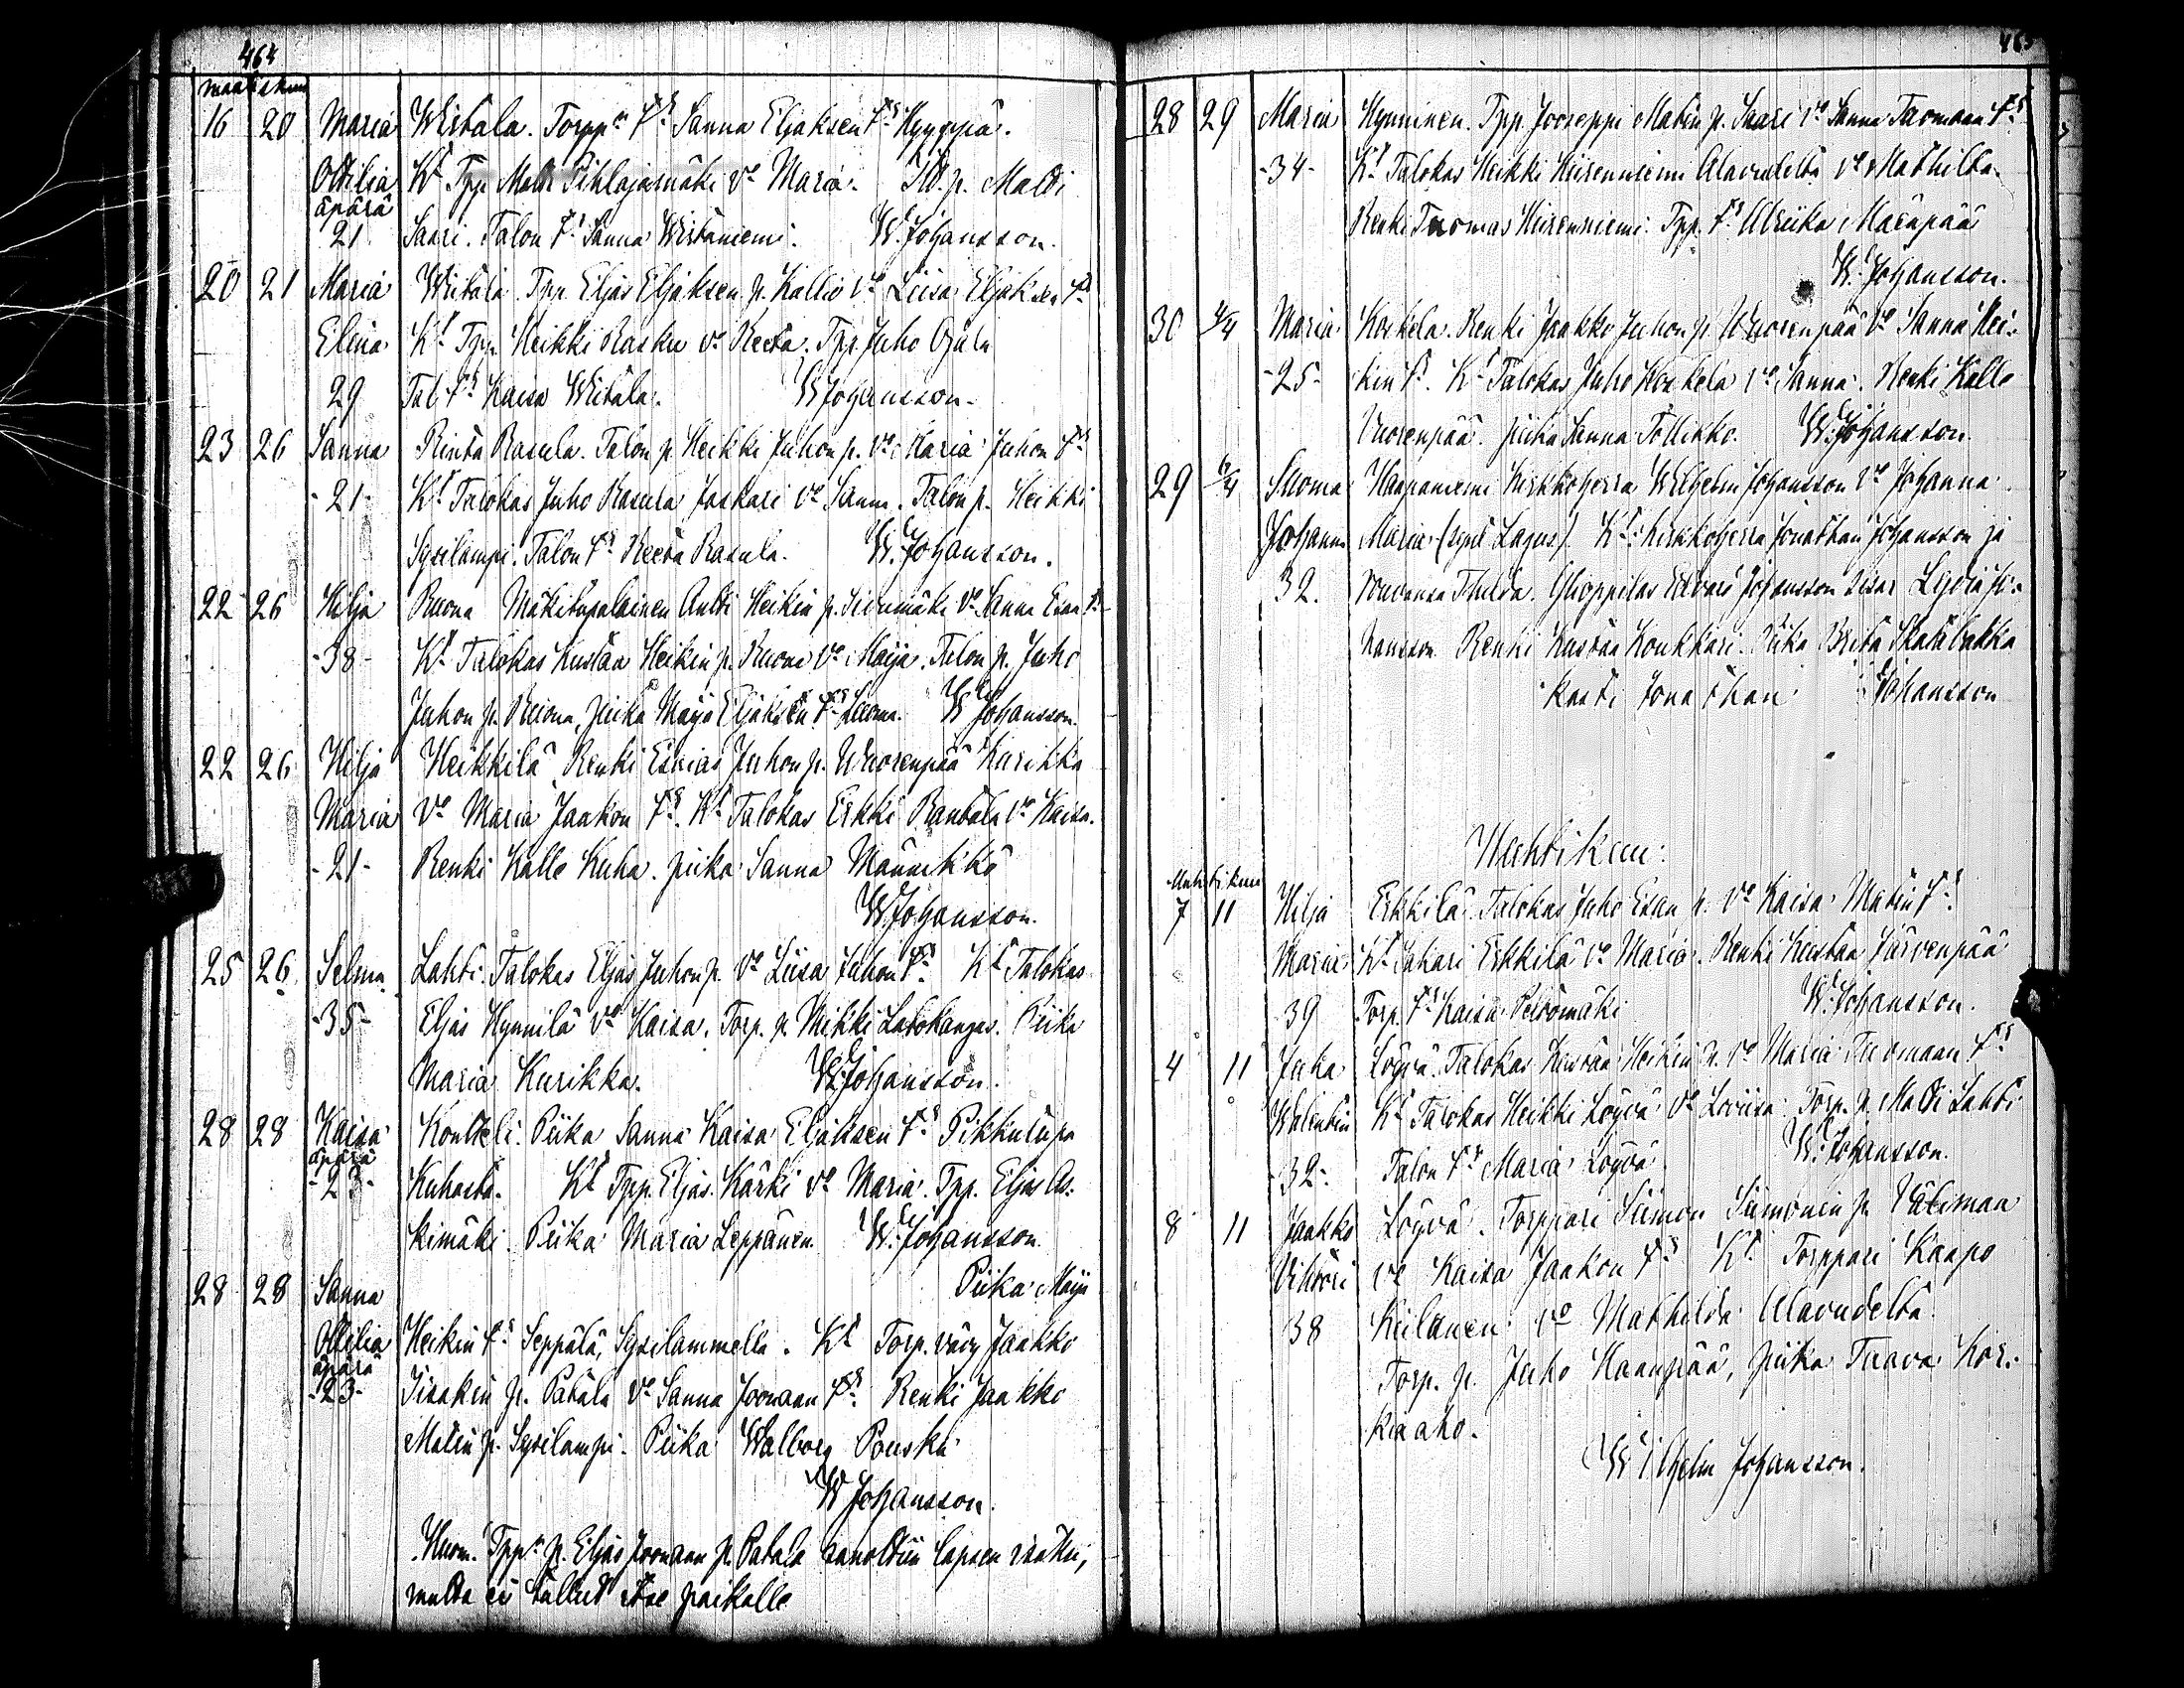 464
maaliskuu
16 20 Maria Wiitala. Torpp:n t:r Sanna Eljaksen t:r Hyyppä.
Ottilia K:t Tpp. Matti Pihlajamäki v:o Maria. Tal. p. Matti
äpärä
21 Saari. Talon t:r Sanna Wiitaniemi. W. Johansson.
20 21 Maria Wiitala Tpp. Eljas Eljaksen p. Kallio v:o Liisa Eljaksen t:r
Elina K:t Tpp. Heikki Rasku v:o Reeta. Tpp. Juho Ojala
29 Tal. t:r Kaisa Wiitala. W. Johansson.
23 26 Sanna Rinta Rasula. Talon p. Heikki Juhon p. v:o Maria Juhon t:r
-21- K:t Talokas Juho Rasula Jaskari v:o Sanna. Talon p. Heikki
Sysilampi. Talon t:r Reeta Rasula. W. Johansson.
22 26 Hilja Ruona Mäkitupalainen Antti Heikin p. v:o Sanna Esan t:r
-38- K:t Talokas Kustaa Heikin p. Ruona v:o Maija. Talon p. Juho
Juhon p. Ruona, piika Maija Eljaksen t:r Luoma. W. Johansson.
22 26 Hilja Heikkilä Renki Esaias Juhon p. Wuorenpää Kurikka
Maria v:o Maria Jaakon t:r. K:t Talokas Erkki Rantala v:o Kaisa.
-21- Renki Kalle Kuha. piika Sanna Männikkö
W. Johansson.
25 26 Selma Lahti. Talokas Eljas Juhon p. v:o Liisa Juhon t:r K:t Talokas
-35- Eljas Hynnilä v:o Kaisa. Torp. p. Nikki Latokangas. Piika
Maria Kurikka. W. Johansson.
28 28 Kaisa Kontteli. Piika Sanna Kaisa Eljaksen t:r Pikkutupa
äpärä
-23- Kuhasta. K:t Tpp. Eljas Kärki v:o Maria. Tpp. Eljas As-
kimäki. Piika Maria Leppänen. W. Johansson.
28 28 Sanna Piika Maija
Ottilia Heikin t:r Seppälä, Sysilammella. K:t Torp. vävy Jaakko
äpärä
-23- Iisakin p. Patala v:o Sanna Joonaan t:r. Renki Jaakko
Matin p. Sysilampi. Piika Walborg Pouska
W Johansson.
Huom. Tpp:n p. Eljas Joonaan p. Patala sanottiin lapsen isäksi,
mutta ei tullut itse paikalle
465
28 29 Maria Hynninen. Tpp. Jooseppi Matin p. Saari v:o Sanna Tuomaan t:r
-34- K:t Talokas Heikki Heirenniemi Alavudelta v:o Mathilta
Renki Tuomas Hiirenniemi. Tpp. t:r Ulriika Mäenpää
W. Johansson.
30 4/4 Maria Koskela. Renki Jaakko Juhon p. Wuorenpää v:o Sanna Hei-
-25- kin t:r. K:t Talokas Juho Koskela v:o Sanna. Renki Kalle
Vuorenpää. piika Sanna Tollikko. W. Johansson.
29 Suoma Haapaniemi Kirkkoherra Wilhelm Johansson v:o Johanna
Johanna Maria (synt Lagus). K:t: Kirkkoherra Jonathan Johansson ja
32. rouvansa Thilda. Ylioppilas Edvard Johansson sisar Lydia Jo-
hansson Renki Kustaa Koukkari. Piika Briita
kasti Jonathan Johansson
Huhtikuu:
Huhtikuu
7 11 Hilja Erkkilä. Talokas Juho Esan p. v:o Kaisa Matin t:r.
Maria K:t Sakari Erkkilä v:o Maria. Renki Kustaa Järvenpää
39 Torp. t:r Kaisa Peltomäki W. Johansson.
4 11 Juha Löyvä. Talokas Kustaa Heikin p. v:o Maria Tuomaan t:r
Walentin K:t Talokas Heikki Löyvä v:o Loviisa. Torp. p. Matti Lahti
-32- Talon t:r Maria Löyvä. W. Johansson.
8 11 Jaakko Löyvä. Torppari Siimon Siimonin p. Välimaa
Vihtori v:o Kaisa Jaakon t:r K:t Torppari Kaapo
38 Keilanen v:o Mathilda Alavudelta.
Torp. p. Juho Haanpää, piika Tuava Kor-
kiaaho.
Wilhelm Johansson.